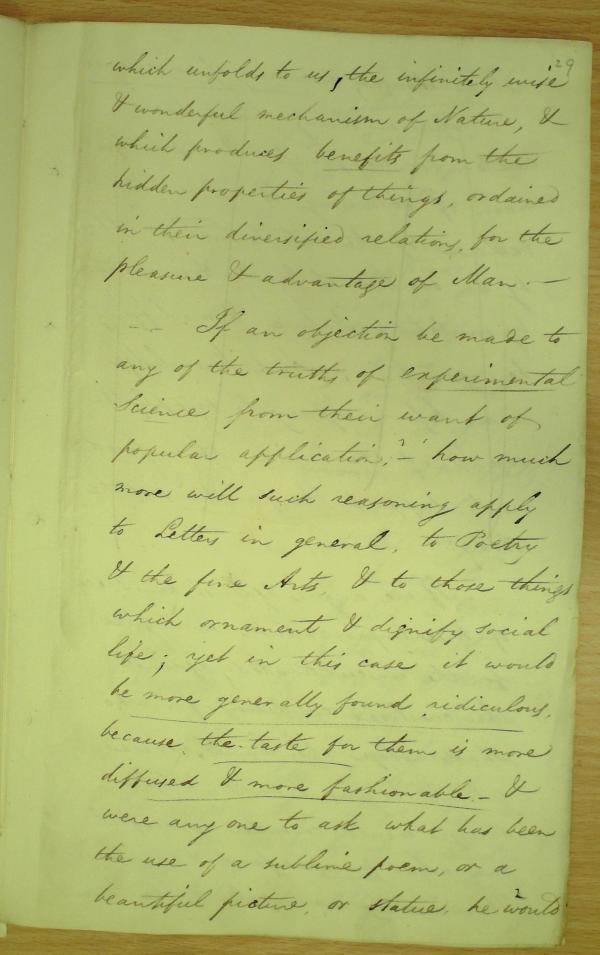 29
which unfolds to us, the infinitely wise
& wonderful mechanism of Nature, &
which produces benefits from the
hidden properties of things, ordained
in their diversified relations, for the
pleasure & advantage of Man. —
-- If an objection be made to
any of the truths of experimental
Science from their want of
popular application; — how much
more will such reasoning apply
to Letters in general, to Poetry
& the fine Arts, & to those things
which ornament & dignify social
life; yet in this case it would
be more generally found ridiculous,
because the taste for them is more
diffused & more fashionable - &
were any one to ask what has been
the use of a sublime poem, or a
beautiful picture, or statue, he would